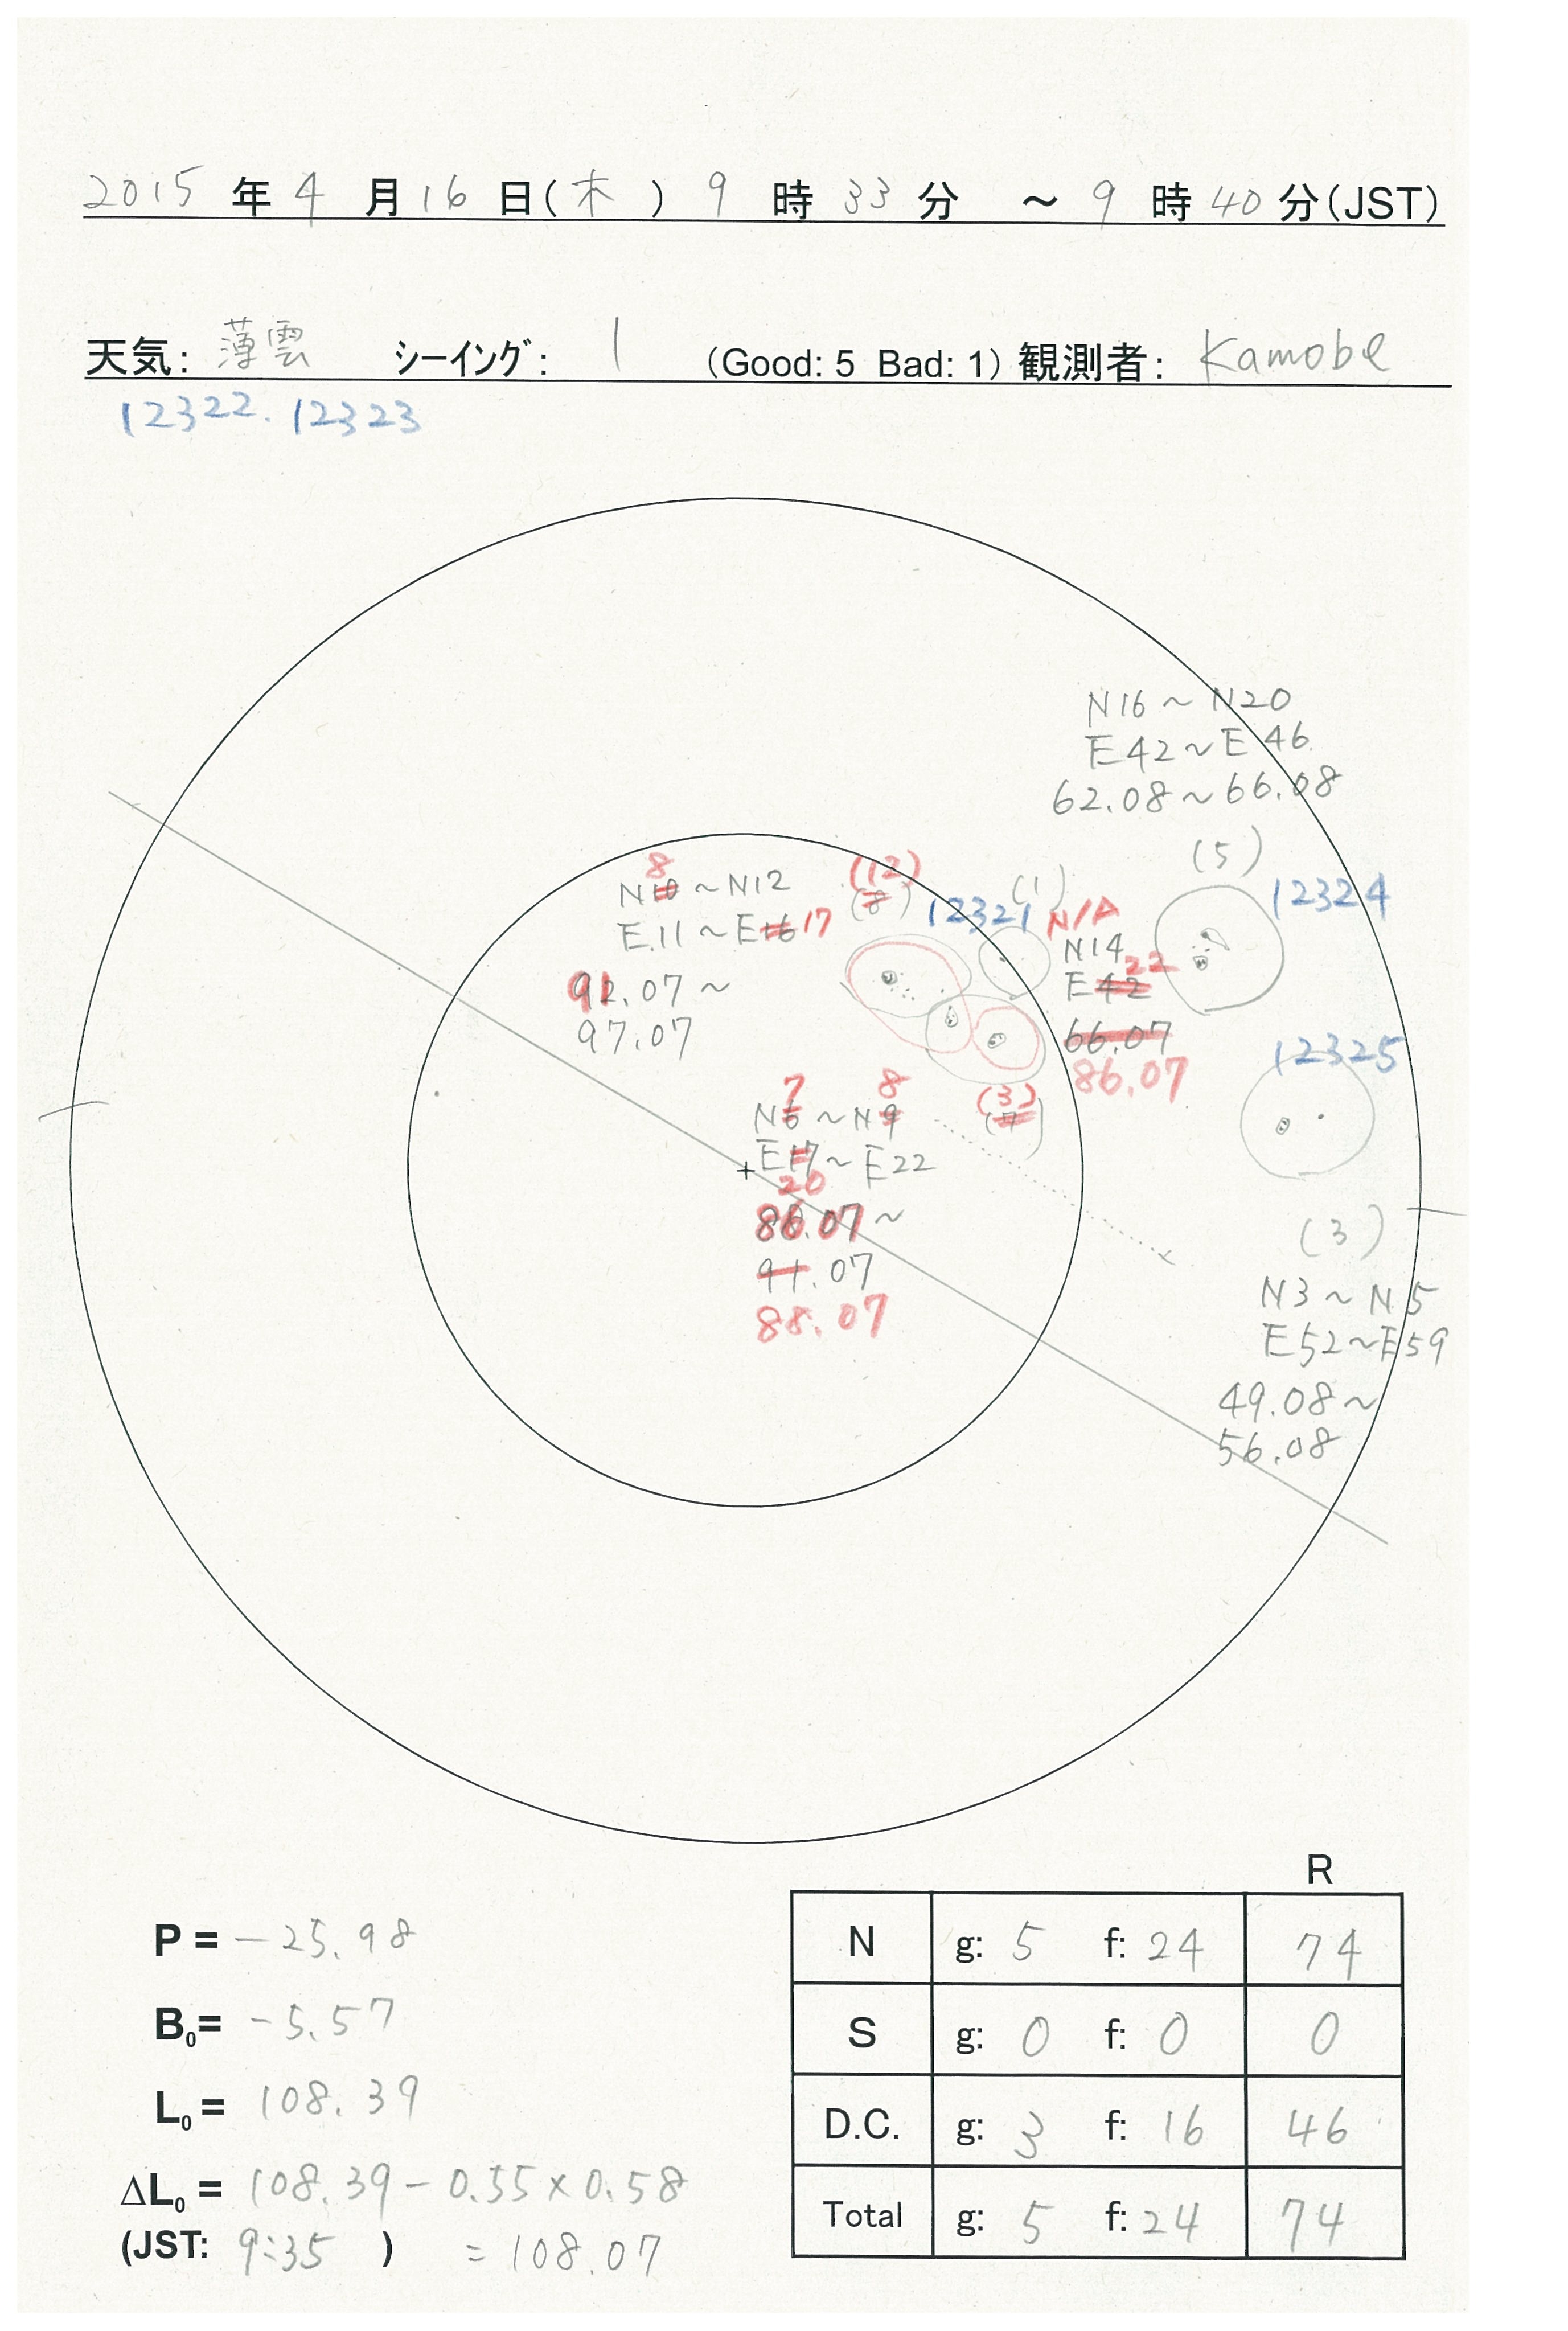 2015 年 4 月 16 日(木) 9 時 33 分 ~ 9 時 40 分(JST)
天気: 薄雲 シーイング: 1 (Good: 5 Bad: 1) 観測者: Kamobe
12322. 12323
N16 ~ N20
E42 ~ E46
62.08 ~ 66.08
(5)
12324
8
N10 ~ N12
E11 ~ E16 17
91.07 ~
97.07
(12)
(8)
12321
(1)
N/A
N14
22
E42
66.07
86.07
12325
7 8
N6 ~ N9
E17 ~ E22
20
86.07 ~
91.07
88.07
(3)
(7)
(3)
N3 ~ N5
E52 ~ E59
49.08 ~
56.08
P = -25.98
B0 = -5.57
L0 = 108.39
ΔL0 = 108.39 - 0.55 × 0.58
(JST: 9:35 ) = 108.07
R
N g: 5 f: 24 74
S g: 0 f: 0 0
D.C. g: 3 f: 16 46
Total g: 5 f: 24 74